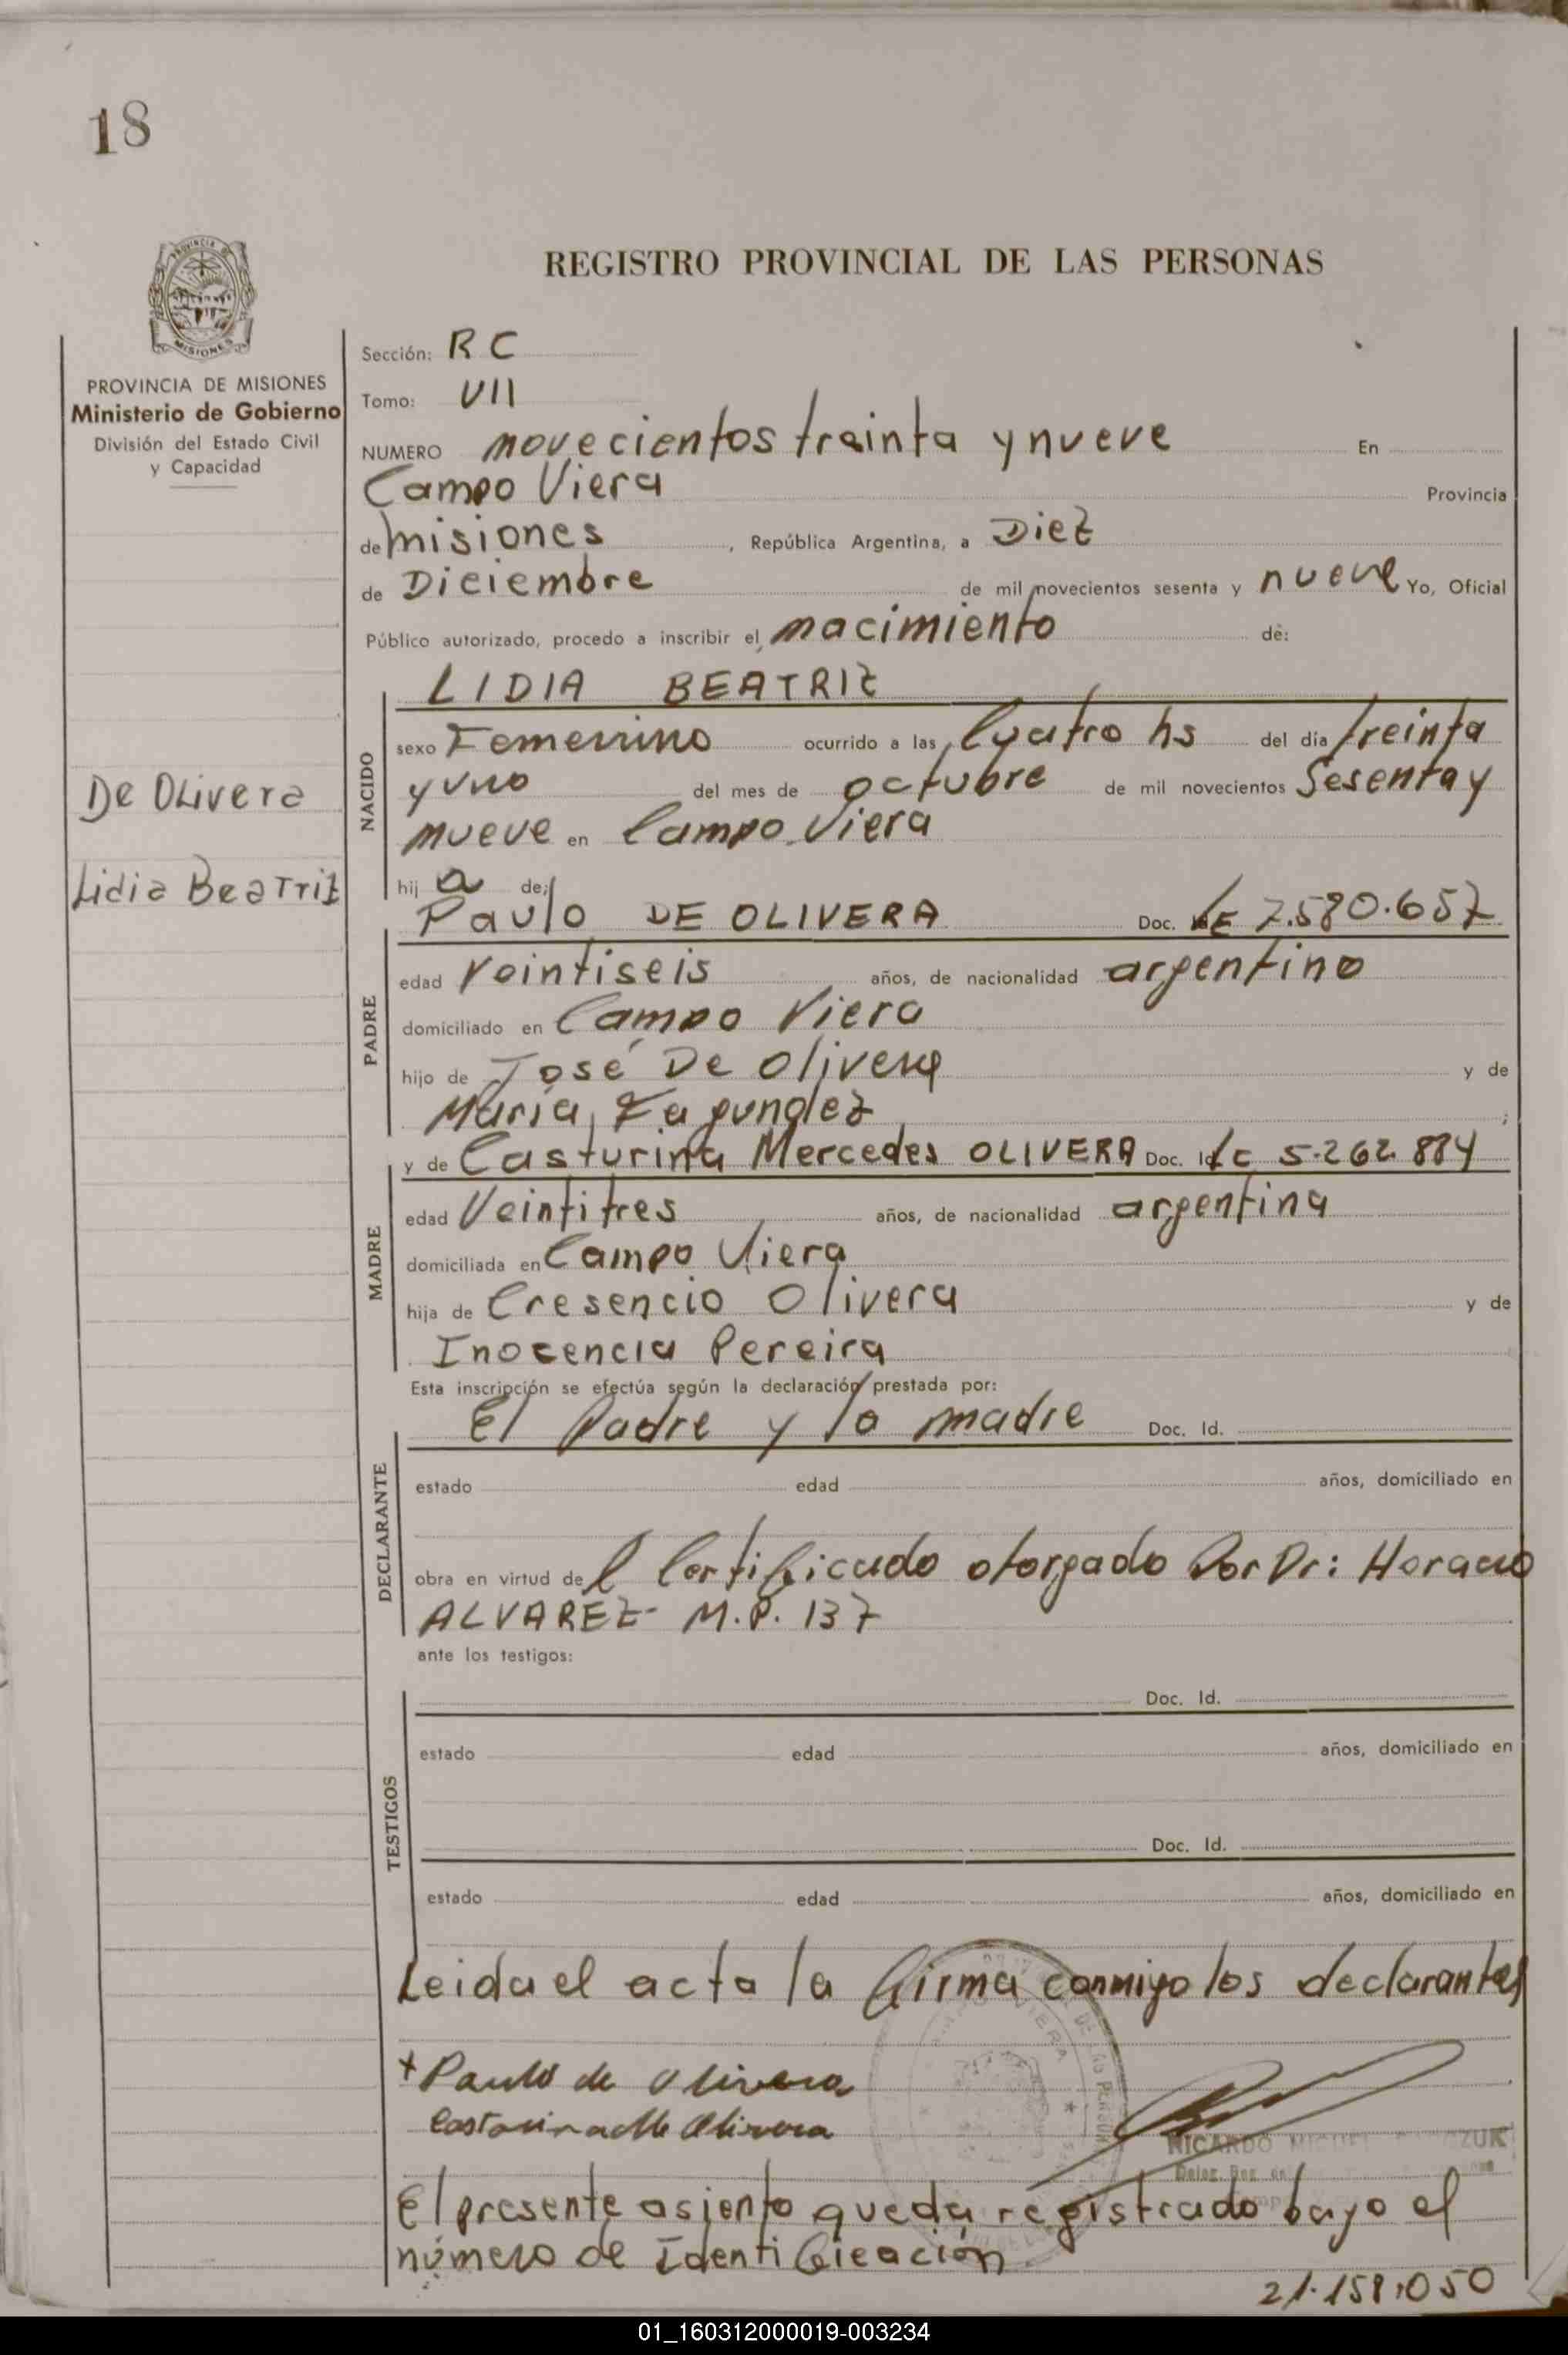 18
REGISTRO PROVINCIAL DE LAS PERSONAS
PROVINCIA DE MISIONES
Ministerio de Gobierno
División del Estado Civil
y Capacidad
De Olivera
Lidia Beatriz
Sección: RC
Tomo: VII
NUMERO novecientos treinta y nueve En
Campo Viera Provincia
de misiones, República Argentina, a Diez
de Diciembre de mil novecientos sesenta y nueve Yo, Oficial
Público autorizado, procedo a inscribir el nacimiento de:
LIDIA BEATRIZ
NACIDO
sexo Femenino ocurrido a las Cuatro hs del día treinta
y uno del mes de octubre de mil novecientos Sesenta y
nueve en Campo Viera
hij a de:
Paulo DE OLIVERA Doc. LE 7.580.657
PADRE
edad Veintiseis años, de nacionalidad argentino
domiciliado en Campo Viera
hijo de José De Olivera y de
Maria Fagundez ;
y de Casturina Mercedes OLIVERA Doc. Id LC 5.262.884
MADRE
edad Veintitres años, de nacionalidad argentina
domiciliada en Campo Viera
hija de Cresencio Olivera y de
Inocencia Pereira
Esta inscripción se efectúa según la declaración prestada por:
El Padre y la madre Doc. Id.
DECLARANTE
estado edad años, domiciliado en
obra en virtud de l Certificado otorgado Por Dr: Horacio
ALVAREZ- M.P. 137
ante los testigos:
Doc. Id.
TESTIGOS
estado edad años, domiciliado en
Doc. Id.
estado edad años, domiciliado en
Leida el acta la firma conmigo los declarantes
+ Paulo de Olivera
Casturina de Olivera
RICARDO MIGUEL
El presente asiento queda registrado bajo el
número de Identificación
21.158.050
01_160312000019-003234